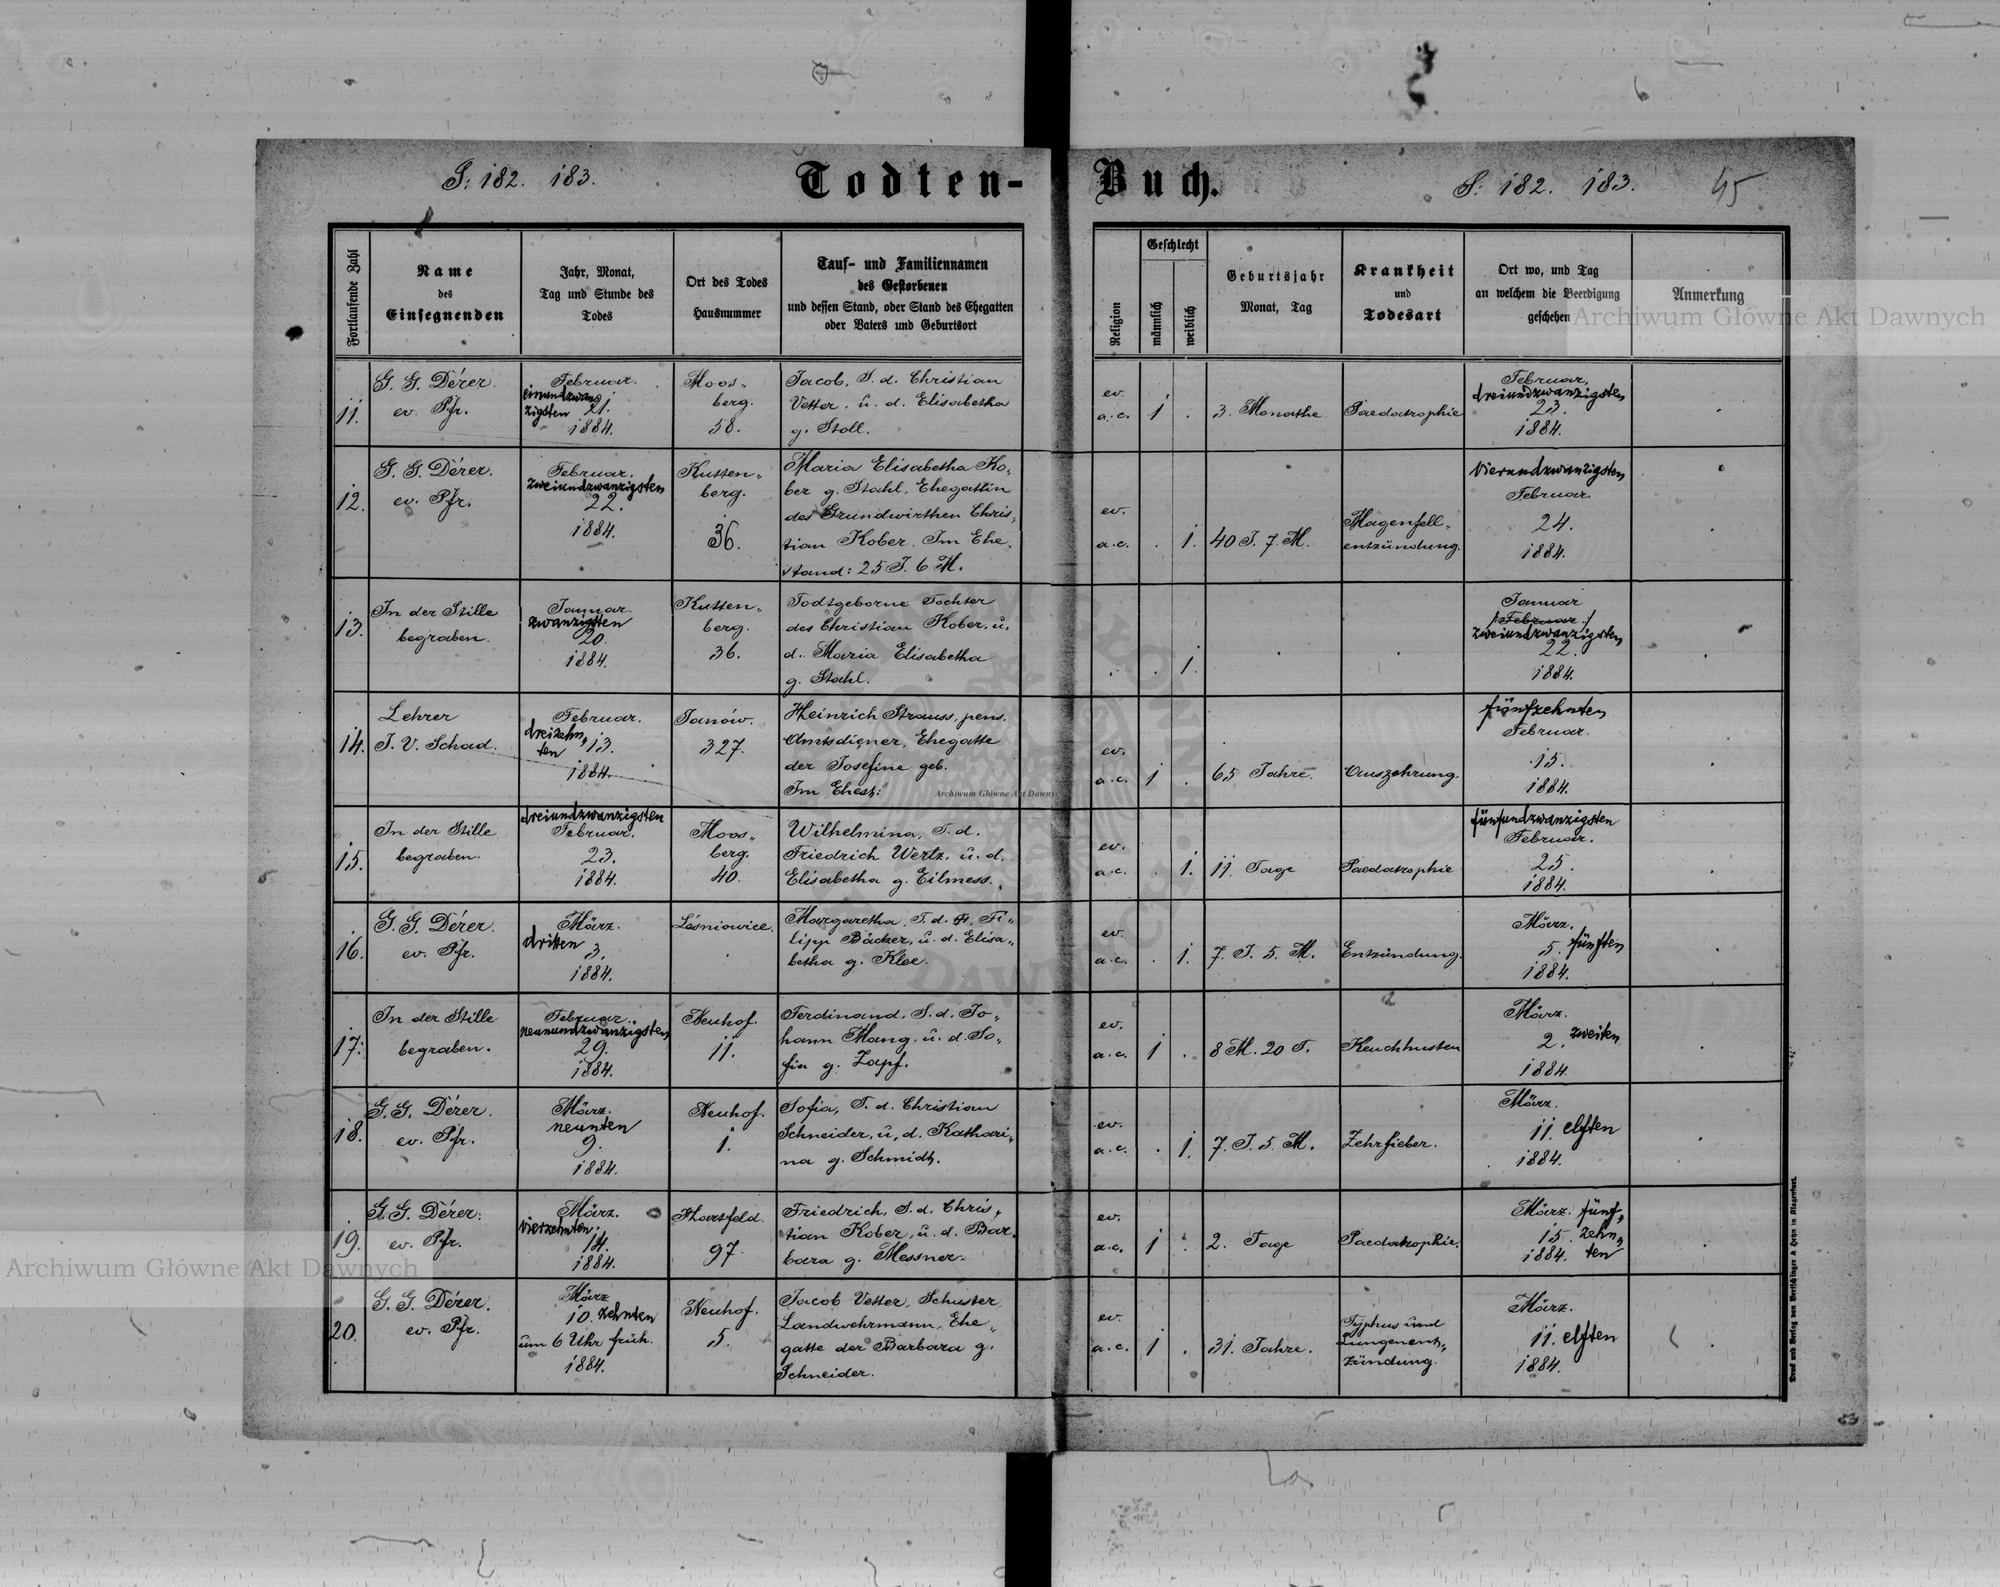 S: 182. 183.
Todten-
Buch.
S: 182. 183.
45
Fortlaufende Zahl
Name
des
Einsegnenden
Jahr, Monat,
Tag und Stunde des
Todes
Ort des Todes
Hausnummer
Tauf- und Familiennamen
des Gestorbenen
und dessen Stand, oder Stand des Ehegatten
oder Vaters und Geburtsort
Religion
Geschlecht
männlich
weiblich
Geburtsjahr
Monat, Tag
Krankheit
und
Todesart
Ort wo, und Tag
an welchem die Beerdigung
geschehen
Anmerkung
Archiwum Główne Akt Dawnych
11.
G. G. Dérer.
ev. Pfr.
Februar.
einundzwan
zigsten 21.
1884.
Moos-
berg.
58.
Jacob, S. d. Christian
Vetter, u. d. Elisabetha
g. Stoll.
ev.
a.c.
1
.
3. Monathe.
Paedatrophie
Februar,
dreiundzwanzigsten
23.
1884.
12.
G. G. Dérer.
ev. Pfr.
Februar.
zweiundzwanzigsten
22.
1884.
Kutten-
berg.
36.
Maria Elisabetha Ko-
ber g. Stahl, Ehegattin
des Grundwirthen Chris-
tian Kober. Im Ehe-
stand: 25 J. 6 M.
ev.
a.c.
.
1.
40 J. 7 M.
Magenfell-
entzündung.
Vierundzwanzigsten
Februar
24.
1884.
13.
In der Stille
begraben.
Januar.
zwanzigsten
20.
1884.
Kutten-
berg.
36.
Todtgeborne Tochter
des Christian Kober, u.
d. Maria Elisabetha
g. Stahl.
.
.
1.
Januar
/:Februar:/
zweiundzwanzigsten
22.
1884.
14.
Lehrer
J. V. Schad.
Februar.
dreizehn-
ten 13.
1884.
Janów.
327.
Heinrich Strauss, pens.
Amtsdiener, Ehegatte
der Josefine geb.
Im Ehest:
Archiwum Główne Akt Dawnych
ev.
a.c.
1
.
65 Jahre.
Auszehrung.
fünfzehnten
Februar.
15.
1884.
15.
In der Stille
begraben.
dreiundzwanzigsten
Februar.
23.
1884.
Moos-
berg.
40.
Wilhelmina, T. d.
Friedrich Wertz, u. d.
Elisabetha g. Eilmess.
ev.
a.c.
.
1.
11. Tage
Paedatrophie
fünfundzwanzigsten
Februar.
25.
1884.
16.
G. G. Dérer.
ev. Pfr.
März.
dritten
3.
1884.
Leśniowice.
Margaretha, T. d. Fi-
lipp Bäcker, u. d. Elisa-
betha g. Klee.
ev.
a.c.
.
1.
7. J. 5. M.
Entzündung.
März.
5. fünften
1884.
17.
In der Stille
begraben.
Februar.
neunundzwanzigsten
29.
1884.
Neuhof.
11.
Ferdinand, S. d. Jo-
hann Mang, u. d. So-
fia g. Zapf.
ev.
a.c.
1
.
8 M. 20 T.
Keuchhusten
März.
2. zweiten
1884.
18.
G. G. Dérer.
ev. Pfr.
März.
neunten
9.
1884.
Neuhof.
1.
Sofia, T. d. Christian
Schneider, u. d. Kathari-
na g. Schmidt.
ev.
a.c.
.
1.
7. J. 5. M.
Zehrfieber.
März.
11. elften
1884.
19.
G. G. Dérer.
ev. Pfr.
März.
vierzehnten.
14.
1884.
Hartfeld.
97.
Friedrich, S. d. Chris-
tian Kober, u. d. Bar-
bara g. Messner.
ev.
a.c.
1
.
2. Tage
Paedatrophie.
März. fünf-
15. zehn-
1884. ten
Archiwum Główne Akt Dawnych
20.
G. G. Dérer.
ev. Pfr.
März
10. zehnten
um 6 Uhr früh.
1884.
Neuhof.
5.
Jacob Vetter, Schuster,
Landwehrmann, Ehe-
gatte der Barbara g.
Schneider.
ev.
a.c.
1
.
31. Jahre.
Typhus und
Lungenent-
zündung.
März.
11. elften
1884.
Druck und Verlag von Bertschinger & Heyn in Klagenfurt.